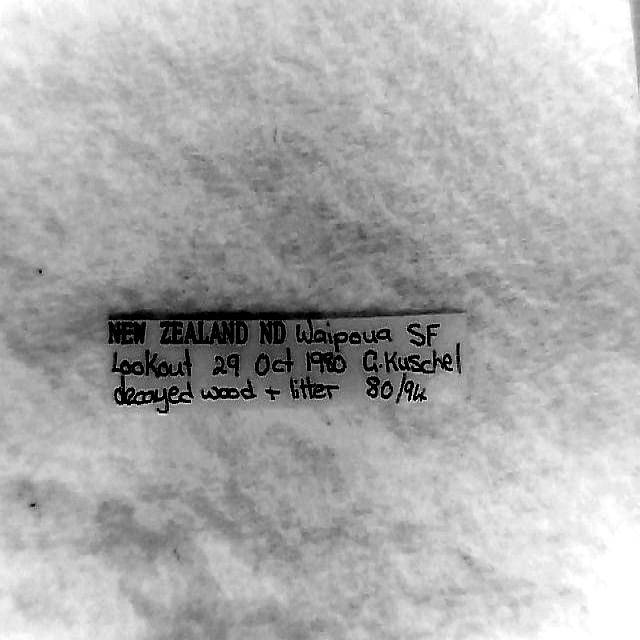 NEW ZEALAND ND Waipoua SF
Lookout 29 Oct 1980 G.Kuschel
decayed wood + litter 80/94